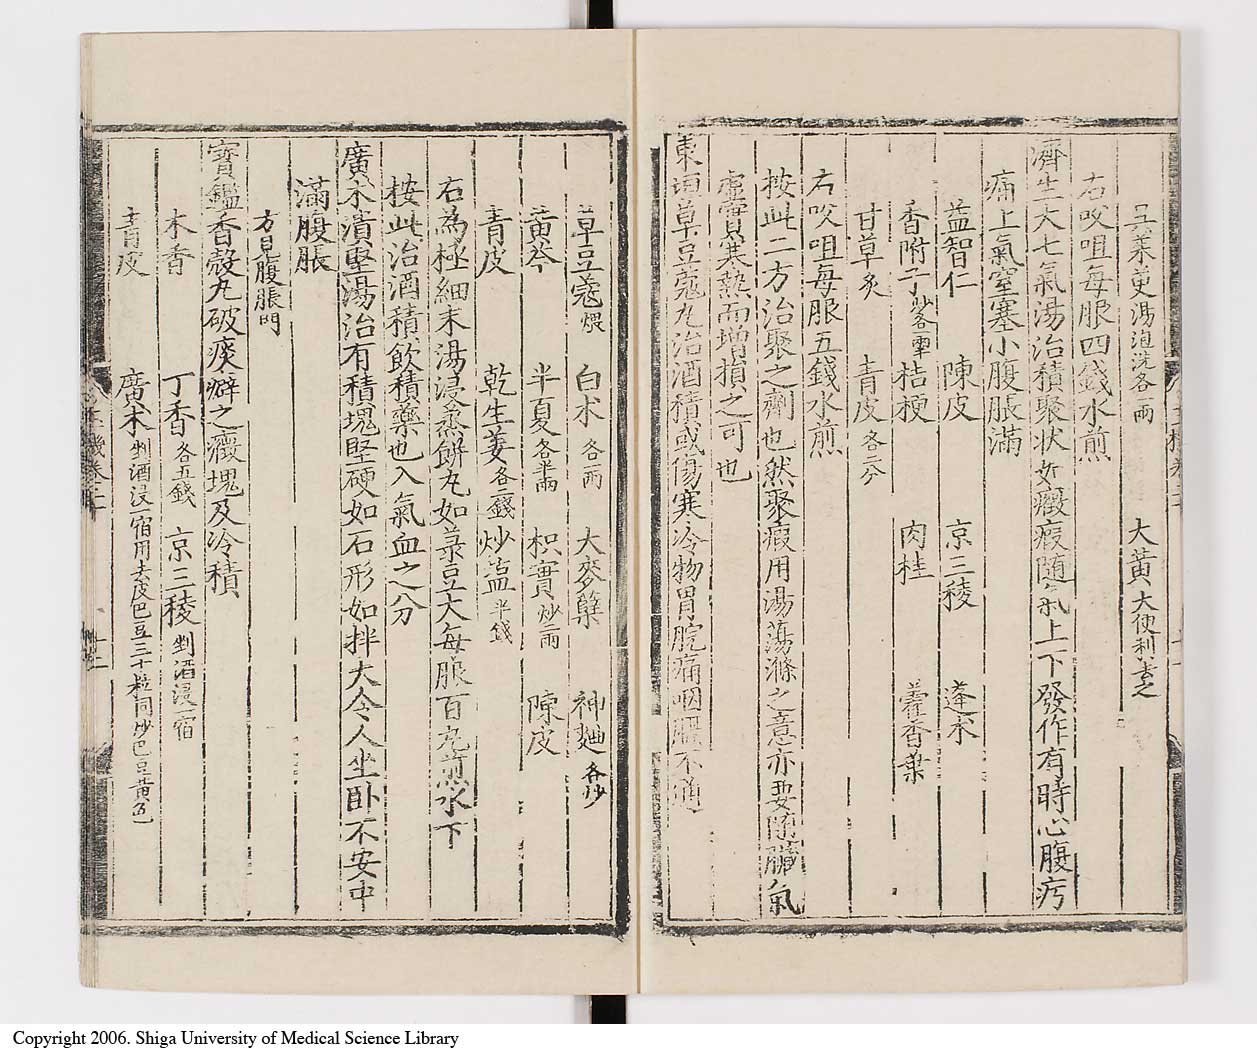 吴茱萸湯泡洗各一兩 大黃大便利去之
右㕮咀每服四錢水煎
濟生大七氣湯治積聚状如癥瘕随氣上下發作有時心腹㽲
痛上氣窒塞小腹脹滿
益智仁 陳皮 京三稜 蓬朮
香附子炒各一兩半 桔梗 肉桂 藿香葉
甘草炙 青皮各二分
右㕮咀每服五錢水煎
按此二方治聚之劑也然聚瘕用湯蕩滌之意亦要除臟氣
虛實寒熱而增損之可也
東垣草豆蔻丸治酒積或傷寒冷物胃脘痛咽膈不通
草豆蔻煨 白朮各一兩 大麥櫱 神麯各炒
黃芩 半夏各半兩 枳實炒二兩 陳皮
青皮 乾生姜各二錢 炒盐半錢
右為極細末湯浸蒸餅丸如菉豆大每服百丸煎水下
按此治酒積飲積藥也入氣血之分
廣朮潰堅湯治有積塊堅硬如石形如拌大令人坐卧不安中
滿腹脹
方見腹脹門
寳鑑香殼丸破痰癖之癥塊及冷積
木香 丁香各五錢 京三稜剉酒浸一宿
青皮 廣朮剉酒浸一宿用去皮巴豆三十粒同炒巴豆黃色
Copyright 2006. Shiga University of Medical Science Library